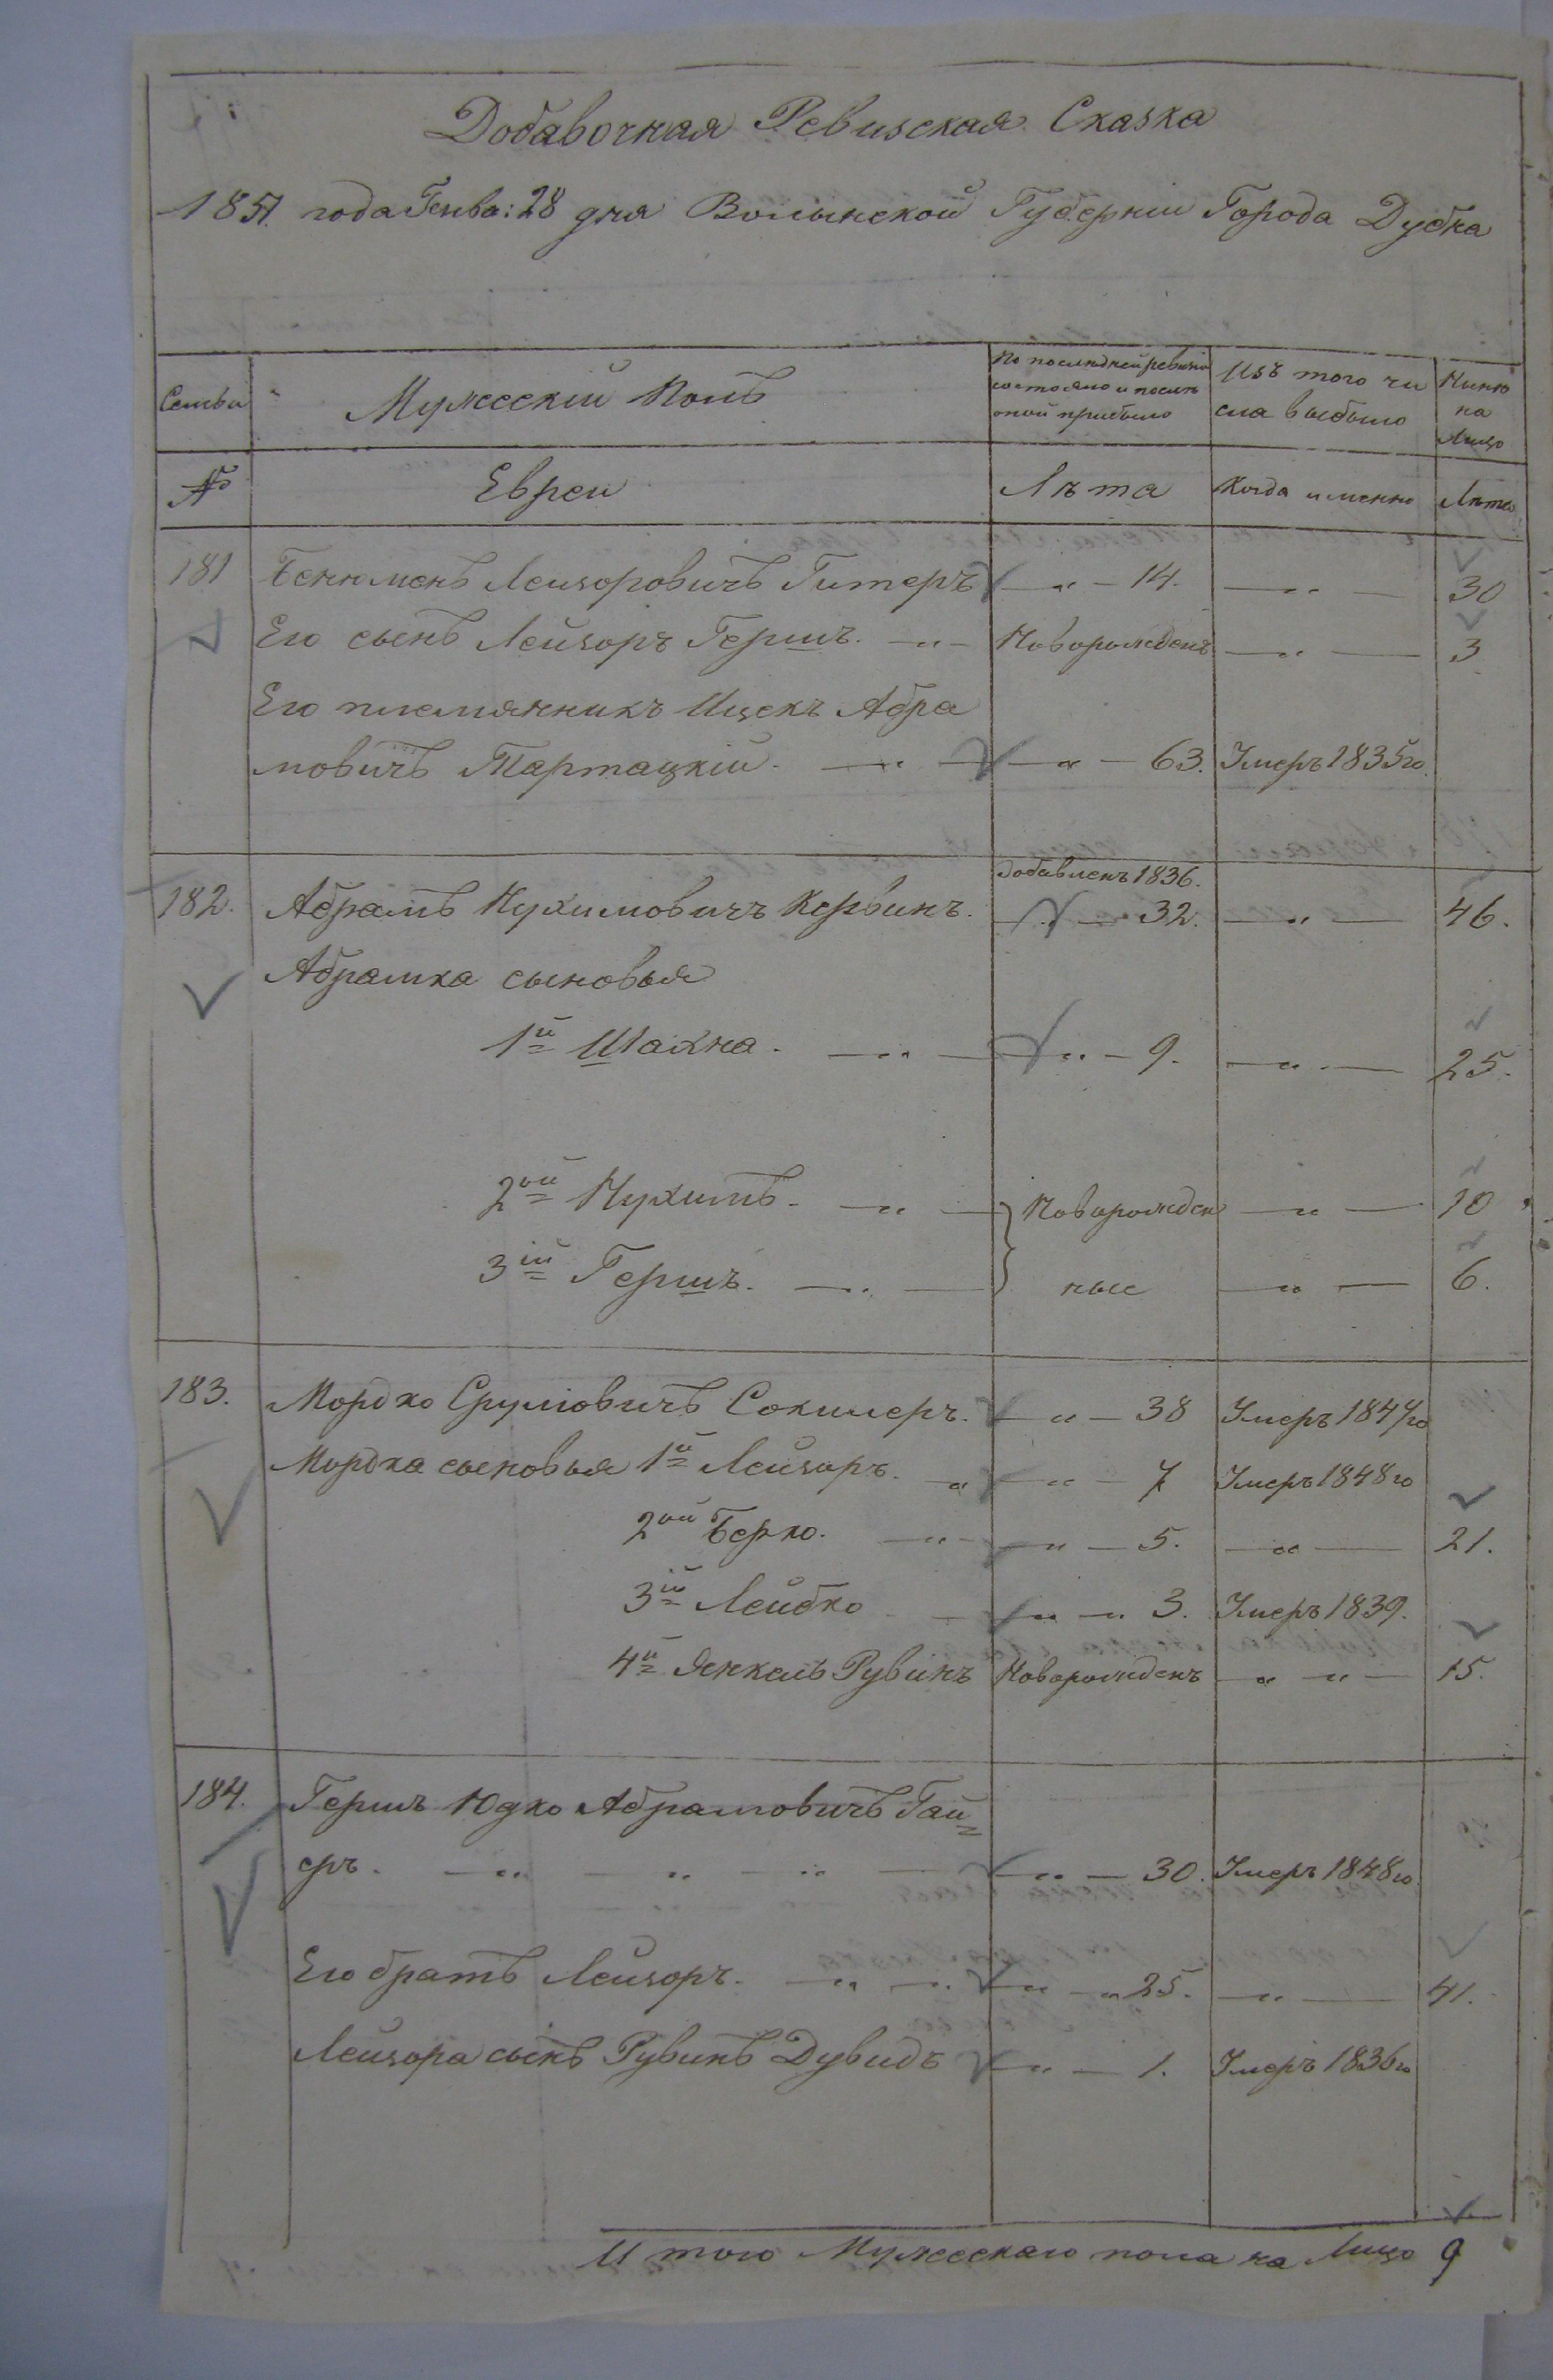 Добавочная Ревизская Сказка
1851 года Генва: 28 дня Волынской Губерніи Города Дубна
Семьи
Мужескій Полъ
По послѣдней ревизіи
состояло и послѣ
оной прибыло
Изъ того чи
сла выбыло
Нынѣ
на
Лицо
№ Евреи Лѣта Когда именно Лѣта
181 Бенюменъ Лейзоровичъ Гитеръ — „ — 14. — „ — 30
Его сынъ Лейзоръ Гершъ. — „ — Новорожденъ — „ — 3
Его племянникъ Ицекъ Абра
мовичъ Тартацкій. — „ — — „ — 63. Умеръ 1835го
добавленъ 1836.
182. Абрамъ Нухимовичъ Кервинъ. — „ — 32. — „ — 46.
Абрамка сыновья
1й Шахна. — „ — — „ — 9. — „ — 25.
2ой Нухимъ. — „ — } Новорожден — „ — 10
3ій Гершъ. — „ — ные — „ — 6.
183. Мордко Сруліовичъ Сокилеръ. — „ — 38 Умеръ 1847го
Мордка сыновья 1й Лейзоръ. — „ — „ — 7 Умеръ 1848го
2ой Берко. — „ — — „ — 5. — „ — 21.
3ій Лейбко — — „ — „ 3. Умеръ 1839.
4й Янкель Рувинъ Новорожденъ — „ — „ — 15.
184. Гершъ Юдко Абрамовичъ Гай=
еръ. — „ — „ — „ — — „ — 30. Умеръ 1848го
Его братъ Лейзоръ. — „ — „ — „ — „ 25. — „ — 41.
Лейзора сынъ Рувинъ Дувидъ — „ — 1. Умеръ 1836го
И того Мужескаго пола на Лицо 9